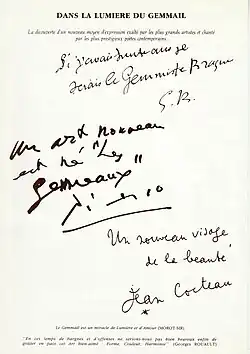 DANS LA LUMIERE DU GEMMAIL
La découverte d'un nouveau moyen d'expression exalté par les plus grands artistes et chanté
par les plus prestigieux poètes contemporains.
Si j'avais trente ans je
serais le Gemmiste Braque
G. B.
Un art nouveau
est né "Les
Gemmaux"
Un nouveau visage
de la beauté
Jean Cocteau
*
Le Gemmail est un miracle de Lumière et d'Amour (MOROT-SIR).
"En ces temps de hargnes et d'offenses ne serions-nous pas bien heureux enfin de
goûter en paix cet art bien-aimé : Forme, Couleur, Harmonie" (Georges ROUAULT)